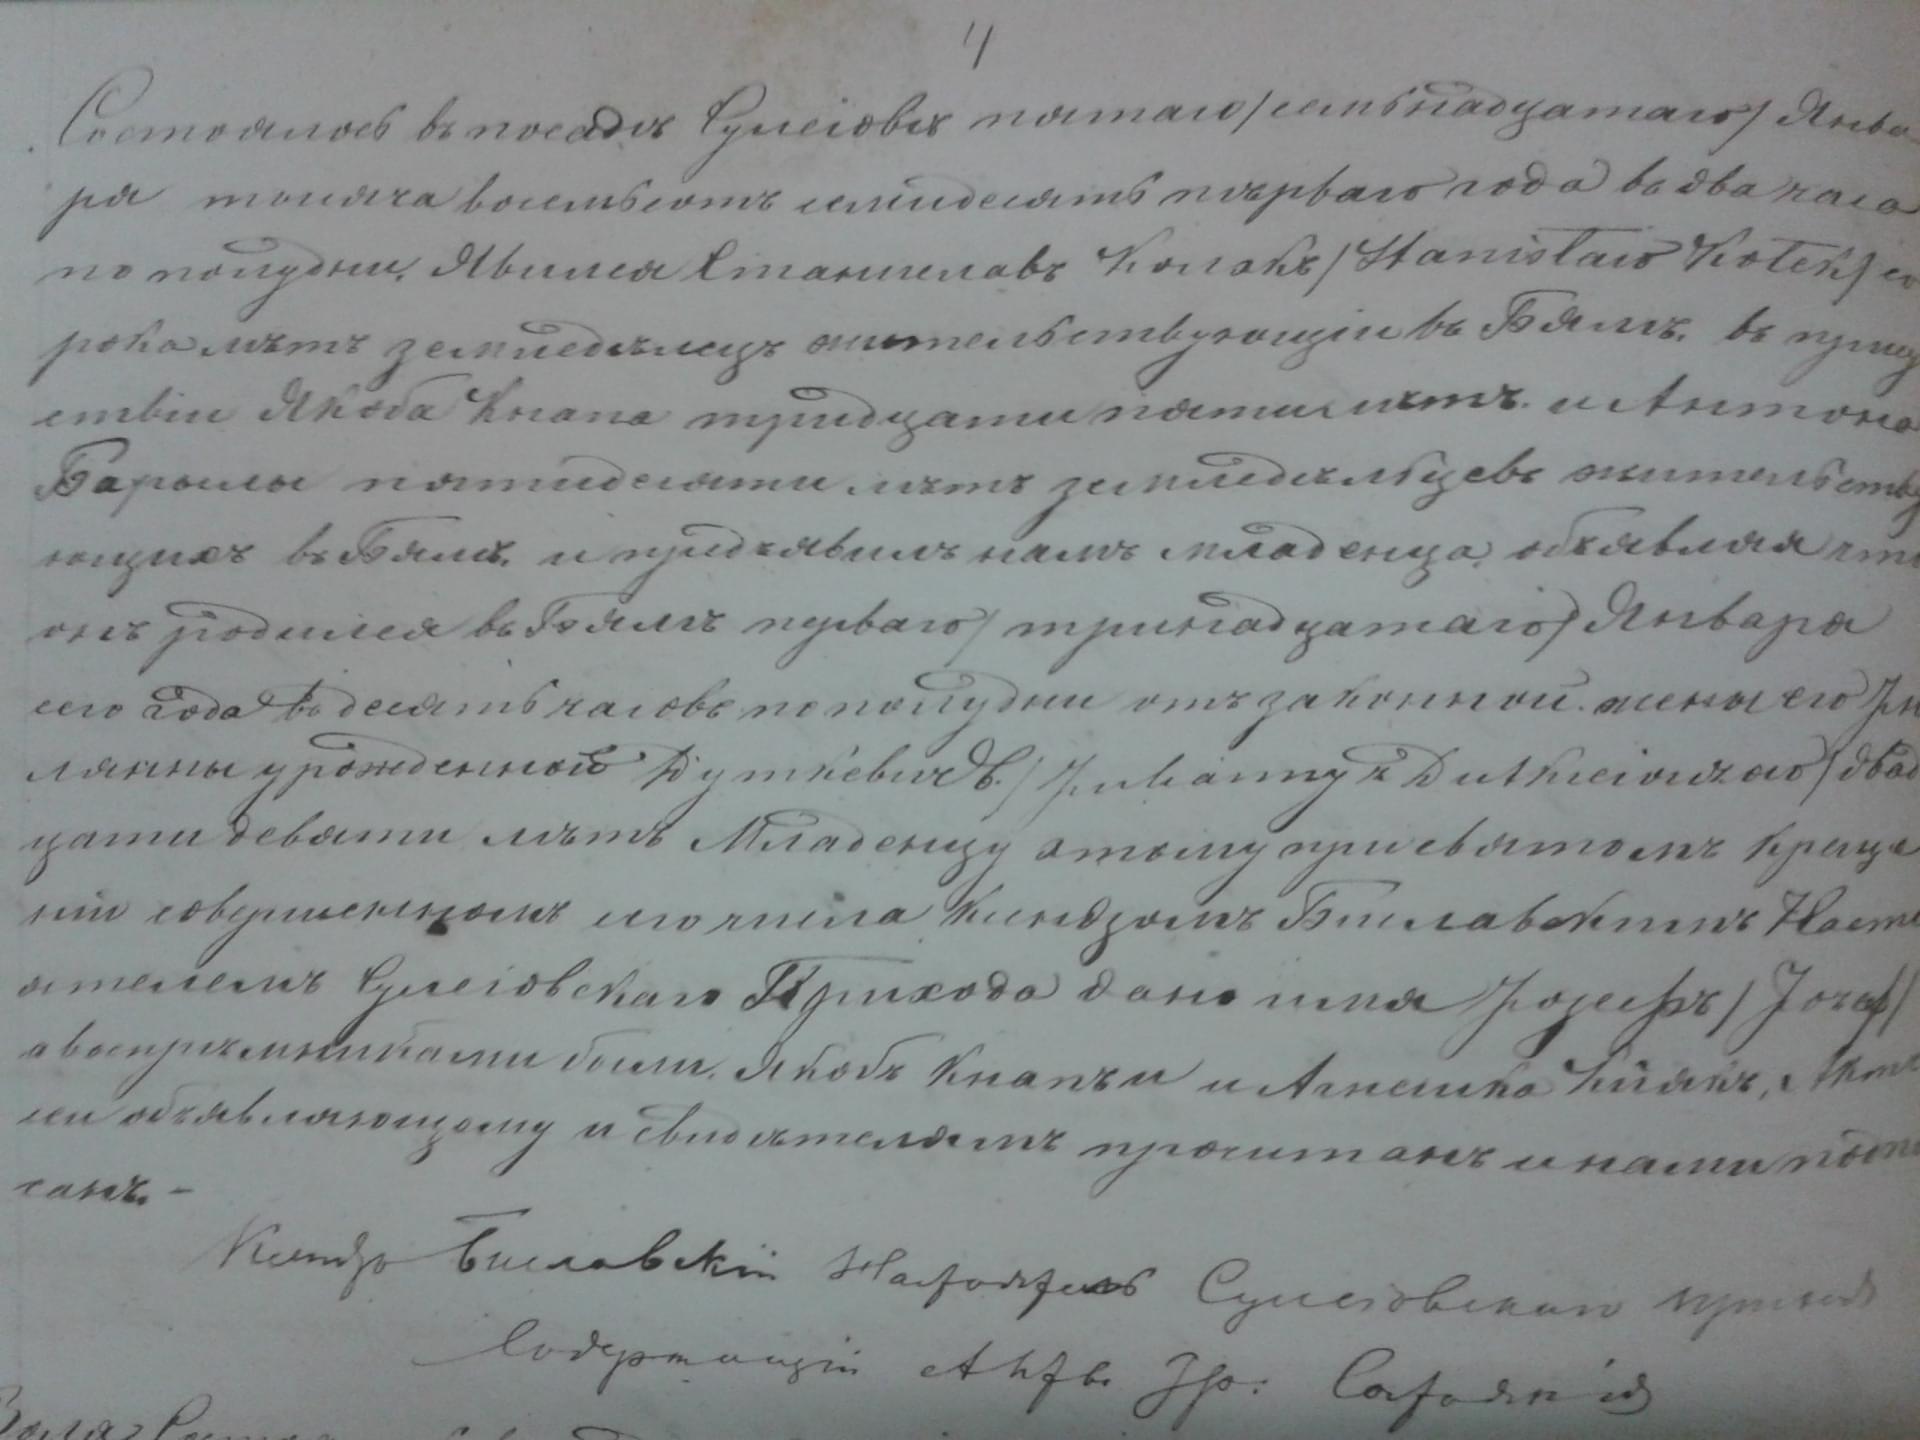 4
Состоялось въ посадѣ Сулеiовѣ пятаго /семьнадцатаго/ Янва
ря тысяча восемьсотъ семидесять пѣрваго года въ два часа
по полудни. Явился Станиславъ Колэкъ /Stanisław Kołek/ со
рока лѣтъ земледѣлецъ жительствующiи въ Бялѣ, въ присуд
ствiи Якоба Кнапа тридцати пяти лѣтъ и Антона
Барылы пятидесяти лѣтъ земледѣльцевъ жительству
ющихъ въ Бялѣ, и предъявилъ намъ младенца, объявляя что
онъ родился въ Бялѣ перваго /тринадцатаго/ Января
сего года въ десять часовъ по полудни отъ законной жены его Ju
лянны урожденной Дуткевичъ /Julianny z Dutkiewiczow/ двад
цати девяти лѣтъ Младенцу этому при святомъ креще
нiи совершенномъ сего числа Ксендзомъ Биславскимъ Насто
ятелемъ Сулеiовскаго Прихода дано имя Jозефъ /Józef/
а воспрiемниками были, Якобъ Кнапъ и Агнешка Киякъ, Актъ
сеи объявляющому и свидѣтелямъ прочитанъ и нами подпи
санъ. –
Ксендзъ Биславскiй Настоятель Сулеiовскаго прихода
Содержащiй Акты Гр: Состоянiя